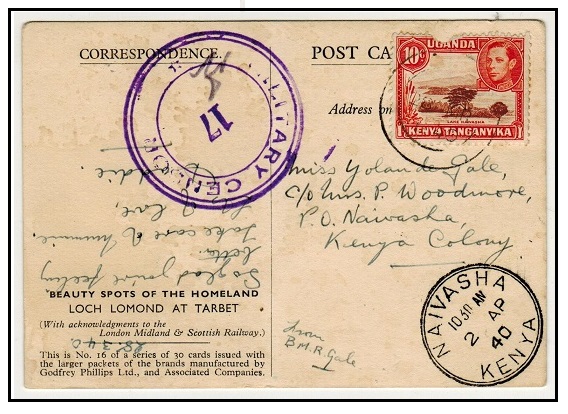 CORRESPONDENCE.
POST CA
Address on
10c
UGANDA
LAKE NAIVASHA
KENYA TANGANYIKA
MILITARY CENSOR
17
So glad you're feeling
better.
Take care of mummie.
love,
Daddie
Miss Yolande Gale,
c/o Mrs. P. Woodmore,
P.O. Naivasha,
Kenya Colony.
BEAUTY SPOTS OF THE HOMELAND
LOCH LOMOND AT TARBET
(With acknowledgments to the
London Midland & Scottish Railway.)
This is No. 16 of a series of 30 cards issued with
the larger packets of the brands manufactured by
Godfrey Phillips Ltd., and Associated Companies.
from
B.M.R. Gale
NAIVASHA
1030 AM
2 AP
40
KENYA